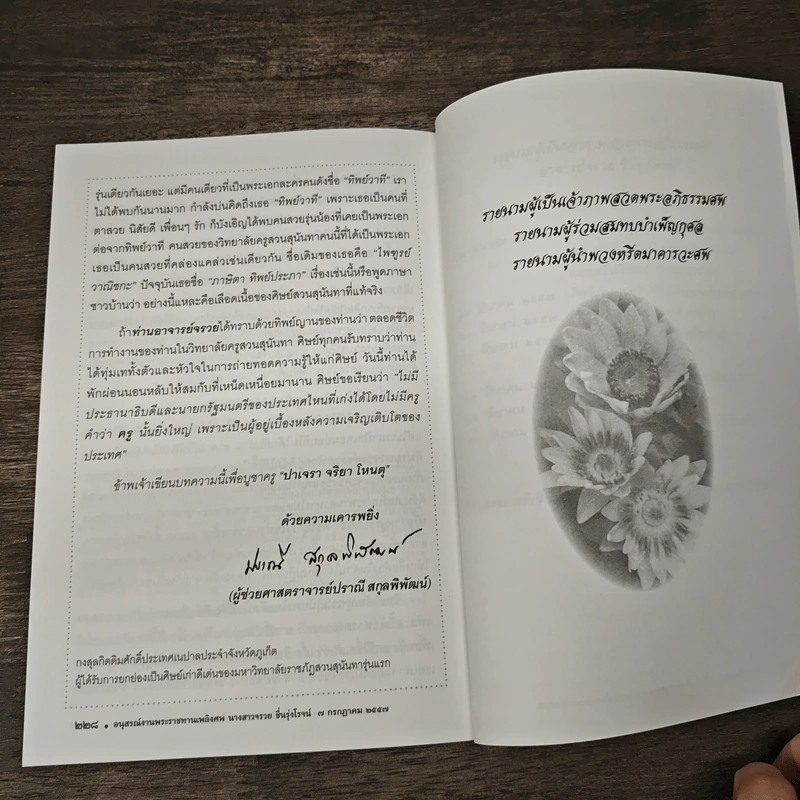 รุ่นเดียวกันเยอะ แต่มีคนเดียวที่เป็นพระเอกละครคนดังชื่อ “ทิพย์วาที” เรา
ไม่ได้พบกันนานมาก กำลังบ่นคิดถึงเธอ “ทิพย์วาที” เพราะเธอเป็นคนที่
ตาสวย นิสัยดี เพื่อนๆ รัก ก็บังเอิญได้พบคนสวยรุ่นน้องที่เคยเป็นพระเอก
ต่อจากทิพย์วาที คนสวยของวิทยาลัยครูสวนสุนันทาคนนี้ที่ได้เป็นพระเอก
เธอเป็นคนสวยที่คล่องแคล่วเช่นเดียวกัน ชื่อเดิมของเธอคือ “ไพฑูรย์
วาณิชกะ” ปัจจุบันเธอชื่อ “ภาษิตา ทิพย์ประภา” เรื่องเช่นนี้หรือพูดภาษา
ชาวบ้านว่า อย่างนี้แหละคือเลือดเนื้อของศิษย์สวนสุนันทาที่แท้จริง
ถ้าท่านอาจารย์จรวยได้ทราบด้วยทิพย์ญานของท่านว่า ตลอดชีวิต
การทำงานของท่านในวิทยาลัยครูสวนสุนันทา ศิษย์ทุกคนรับทราบว่าท่าน
ได้ทุ่มเททั้งตัวและหัวใจในการถ่ายทอดความรู้ให้แก่ศิษย์ วันนี้ท่านได้
พักผ่อนนอนหลับให้สมกับที่เหน็ดเหนื่อยมานาน ศิษย์ขอเรียนว่า “ไม่มี
ประธานาธิบดีและนายกรัฐมนตรีของประเทศไหนที่เก่งได้โดยไม่มีครู
คำว่า ครู นั้นยิ่งใหญ่ เพราะเป็นผู้อยู่เบื้องหลังความเจริญเติบโตของ
ประเทศ”
ข้าพเจ้าเขียนบทความนี้เพื่อบูชาครู “ปาเจรา จริยา โหนตุ”
ด้วยความเคารพยิ่ง
ปราณี สกุลพิพัฒน์
(ผู้ช่วยศาสตราจารย์ปราณี สกุลพิพัฒน์)
กงสุลกิตติมศักดิ์ประเทศเนปาลประจำจังหวัดภูเก็ต
ผู้ได้รับการยกย่องเป็นศิษย์เก่าดีเด่นของมหาวิทยาลัยราชภัฏสวนสุนันทารุ่นแรก
๒๒๘ • อนุสรณ์งานพระราชทานเพลิงศพ นางสาวจรวย ชื่นรุ่งโรจน์ ๗ กรกฎาคม ๒๕๕๗
รายนามผู้เป็นเจ้าภาพสวดพระอภิธรรมศพ
รายนามผู้ร่วมสมทบบำเพ็ญกุศล
รายนามผู้นำพวงหรีดมาคารวะศพ